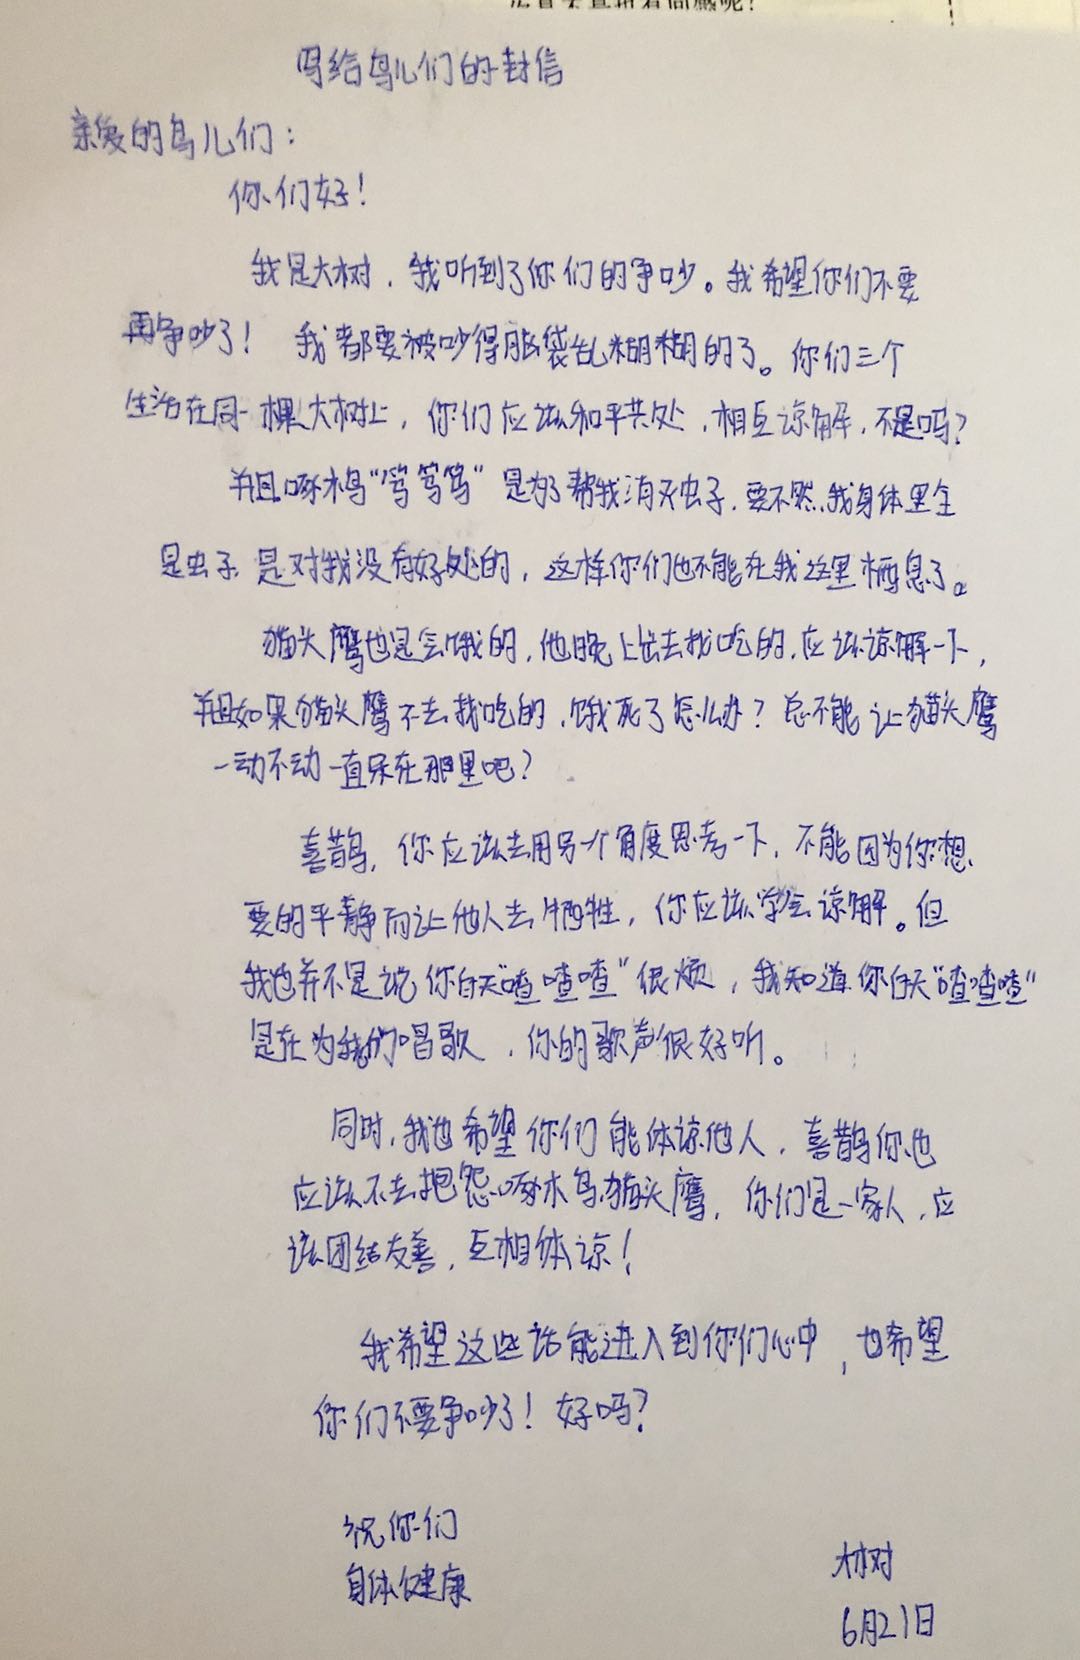 写给鸟儿们的封信
亲爱的鸟儿们：
你们好！
我是大树，我听到了你们的争吵。我希望你们不要
再争吵了！我都要被吵得脑袋乱糊糊的了。你们三个
生活在同一棵大树上，你们应该和平共处，相互谅解，不是吗？
并且啄木鸟“笃笃笃”是为了帮我消灭虫子，要不然，我身体里全
是虫子，是对我没有好处的，这样你们也不能在我这里栖息了。
猫头鹰也是会饿的，他晚上出去找吃的，应该谅解一下，
并且如果猫头鹰不去找吃的，饿死了怎么办？总不能让猫头鹰
一动不动一直呆在那里吧？
喜鹊，你应该去用另一个角度思考一下，不能因为你想
要的平静而让他人去牺牲，你应该学会谅解。但
我也并不是说你白天“喳喳喳”很烦，我知道你白天“喳喳喳”
是在为我们唱歌，你的歌声很好听。
同时，我也希望你们能体谅他人，喜鹊你也
应该不去抱怨啄木鸟、猫头鹰，你们是一家人，应
该团结友善，互相体谅！
我希望这些话能进入到你们心中，也希望
你们不要争吵了！好吗？
祝你们
身体健康
大树
6月21日